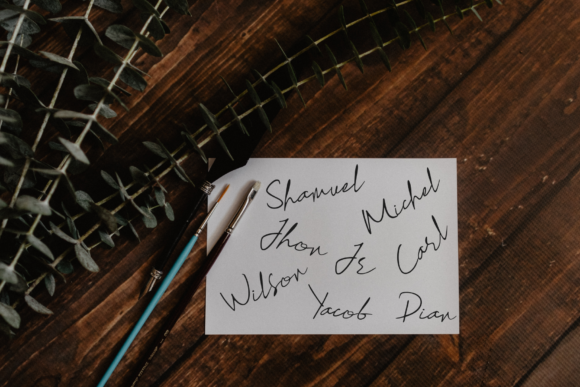 Shamuel
Michel
Jhon
JE
Carl
Wilson
Yacob
Dian